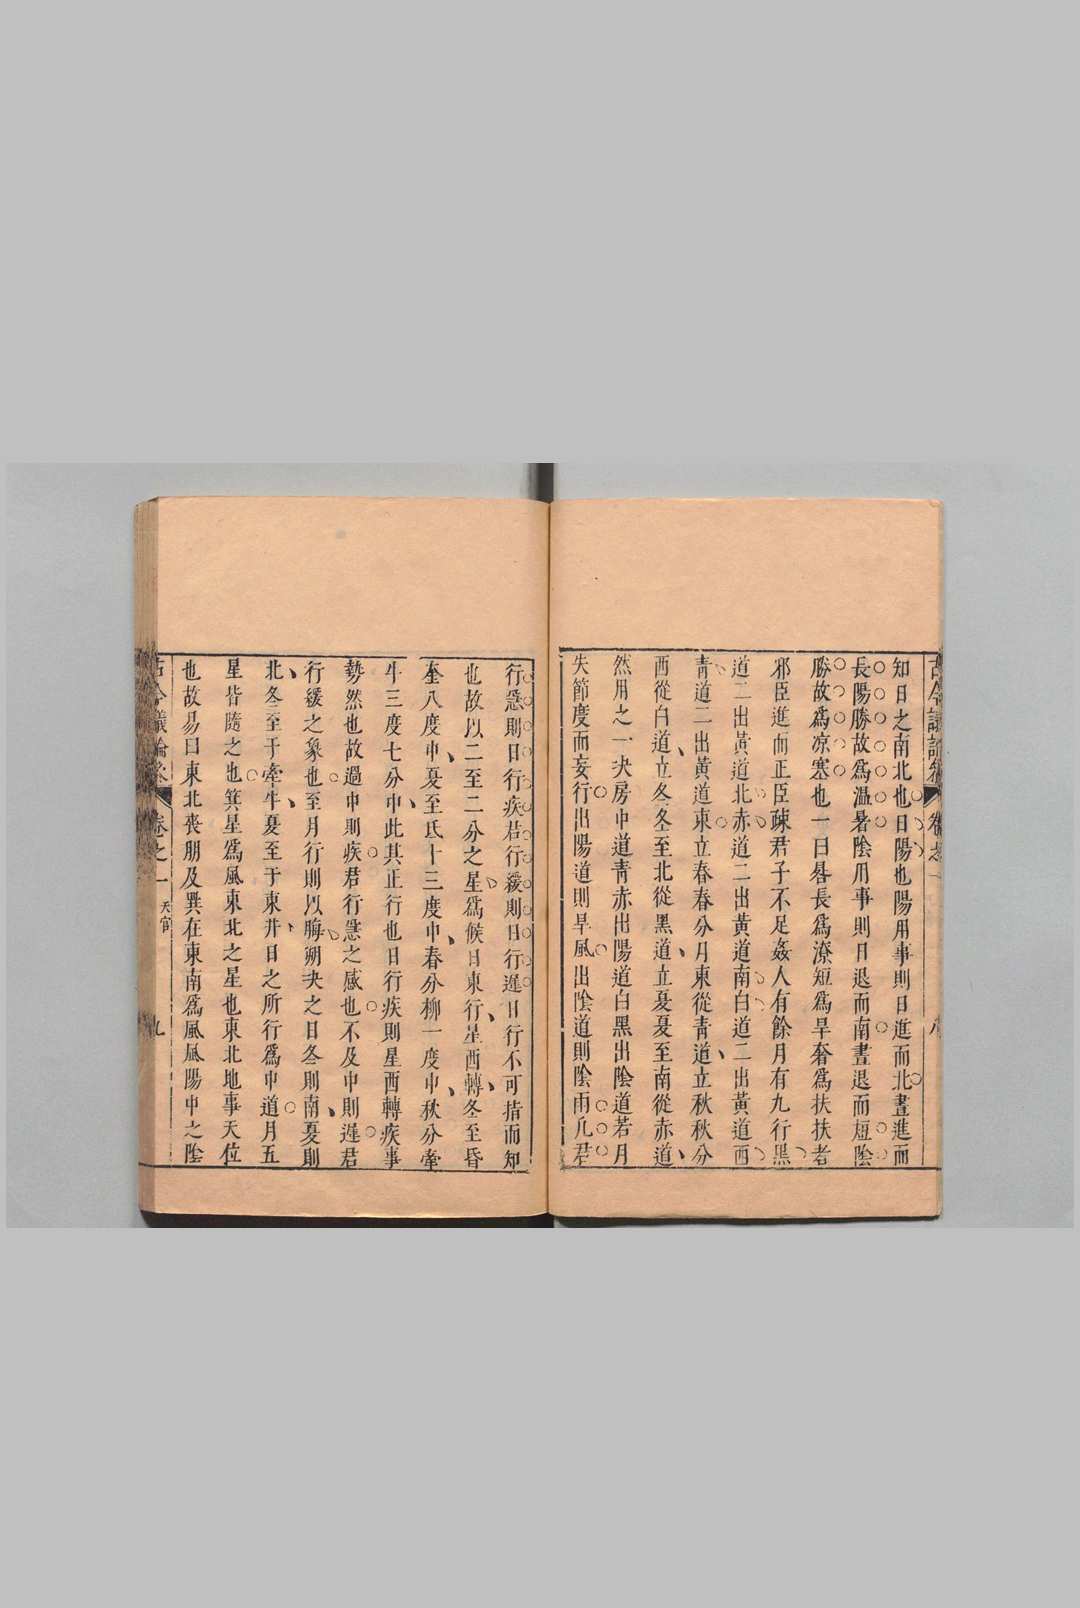 知日之南北也日陽也陽用事則日進而北晝進而
長陽勝故爲温暑陰用事則日退而南晝退而短陰
勝故爲凉寒也一曰晷長爲潦短爲旱奢爲扶扶者
邪臣進而正臣疎君子不足姦人有餘月有九行黑
道二出黃道北赤道二出黃道南白道二出黃道西
青道二出黃道東立春春分月東從青道立秋秋分
西從白道立冬冬至北從黑道立夏夏至南從赤道
然用之一决房中道青赤出陽道白黑出陰道若月
失節度而妄行出陽道則旱風出陰道則陰雨凡君
行急則日行疾君行緩則日行遲日行不可指而知
也故以二至二分之星爲候日東行星西轉冬至昏
奎八度中夏至氐十三度中春分柳一度中秋分牽
牛三度七分中此其正行也日行疾則星西轉疾事
勢然也故過中則疾君行急之感也不及中則遲君
行緩之象也至月行則以晦朔决之日冬則南夏則
北冬至于牽牛夏至于東井日之所行爲中道月五
星皆隨之也箕星爲風東北之星也東北地事天位
也故易曰東北喪朋及巽在東南爲風風陽中之陰
古今議論參
卷之一
天官
九